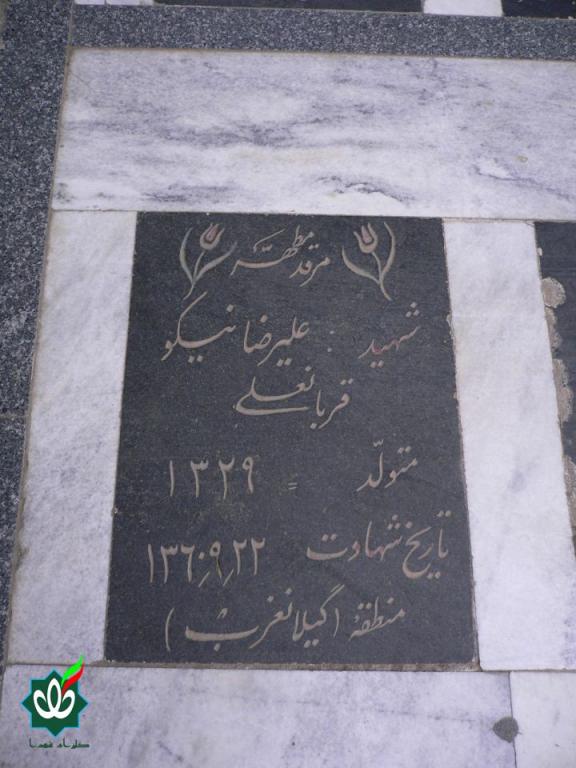 مرقد مطهّر
شهید : علیرضا نیکو
قربانعلی
متولّد = ۱۳۲۹
تاریخ شهادت ۱۳۶۰٫۹٫۲۲
منطقهٔ (گیلانغرب)
گلزار شهدا